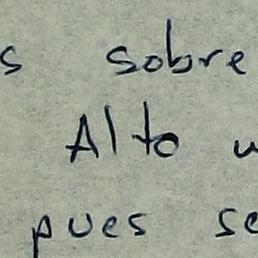 s sobre
Alto
pues se